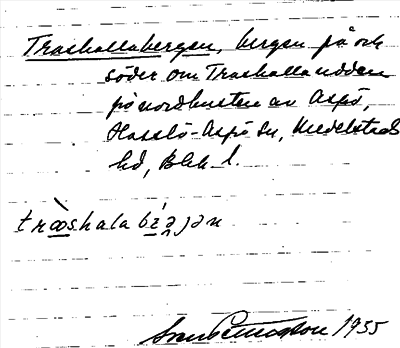 Trashallabergen, bergen på och
söder om Trashallaudden
på nordkusten av Aspö,
Hasslö-Aspö sn, Medelstads
hd, Blek. l.
tròoshala
1955